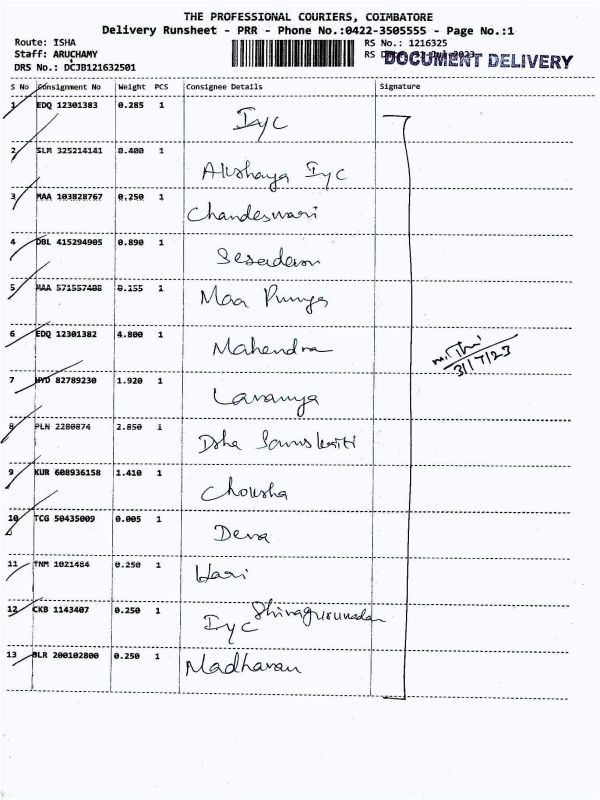 THE PROFESSIONAL COURIERS, COIMBATORE
Delivery Runsheet - PRR - Phone No.:0422-3505555 - Page No.:1
Route: ISHA
RS No.: 1216325
Staff: ARUCHAMY
RS Date: 31-Jul-2023
DOCUMENT DELIVERY
DRS No.: DCJB121632501
S No Consignment No Weight PCS Consignee Details Signature
1 EDQ 12301383 0.285 1 Iyc
2 SLM 325214141 0.400 1 Akshaya Iyc
3 MAA 103828767 0.250 1 Chandeswari
4 DBL 415294905 0.890 1
5 MAA 571557408 0.155 1 Maa Punya
6 EDQ 12301382 4.800 1 Mahendra
7 HYD 82789230 1.920 1 Lavanya
8 PLN 2280874 2.850 1 Isha Samskriti
9 KUR 608936158 1.410 1
10 TCG 50435009 0.005 1 Deva
11 TNM 1021484 0.250 1 Hari
12 CKB 1143407 0.250 1 Iyc
13 BLR 200102800 0.250 1 Madhavan
31/7/23